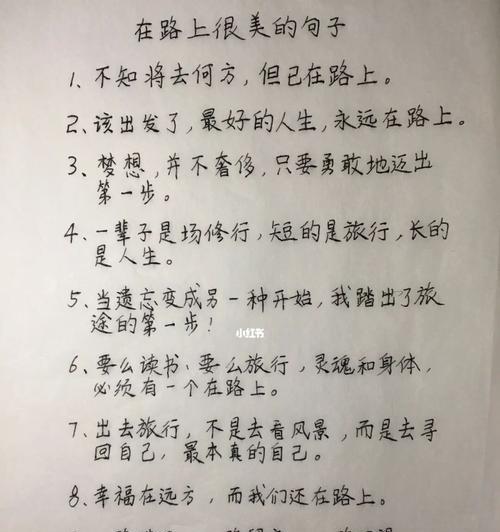 在路上很美的句子
1、不知将去何方,但已在路上。
2、该出发了,最好的人生,永远在路上。
3、梦想,并不奢侈,只要勇敢地迈出
第一步。
4、一辈子是场修行,短的是旅行,长的
是人生。
5、当遗忘变成另一种开始,我踏出了旅
途的第一步!
小红书
6、要么读书、要么旅行,灵魂和身体,
必须有一个在路上。
7、出去旅行,不是去看风景,而是去寻
回自己,最本真的自己。
8、幸福在远方,而我们还在路上。